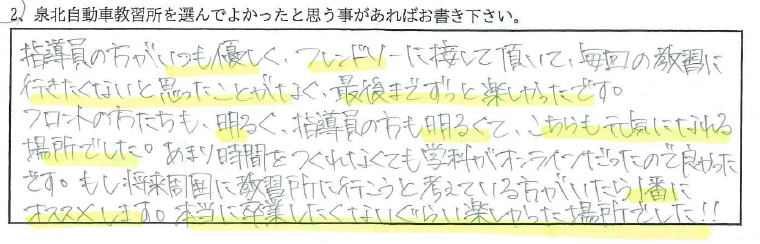 2、泉北自動車教習所を選んでよかったと思う事があればお書き下さい。
指導員の方がいつも優しく、フレンドリーに接して頂いて、毎回の教習に
行きたくないと思ったことがなく、最後までずっと楽しかったです。
フロントの方たちも、明るく、指導員の方も明るくて、こちらも元気になれる
場所でした。あまり時間をつくれなくても学科がオンラインだったので良かった
です。もし将来周囲に教習所に行こうと考えている方がいたら1番に
オススメします。本当に卒業したくないぐらい楽しかった場所でした!!